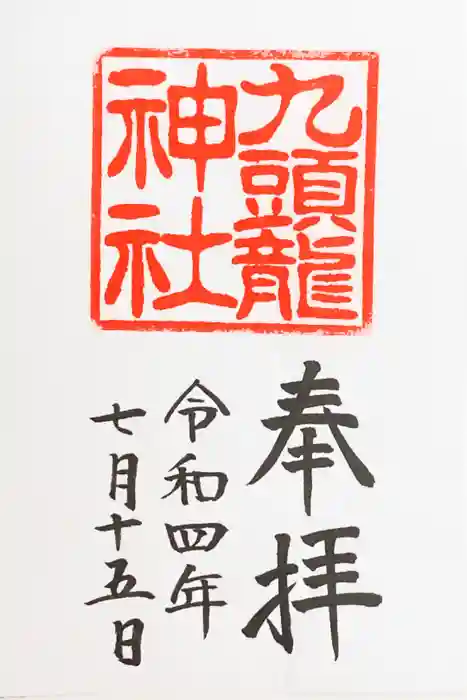 九頭龍
神社
奉拝
令和四年
七月十五日